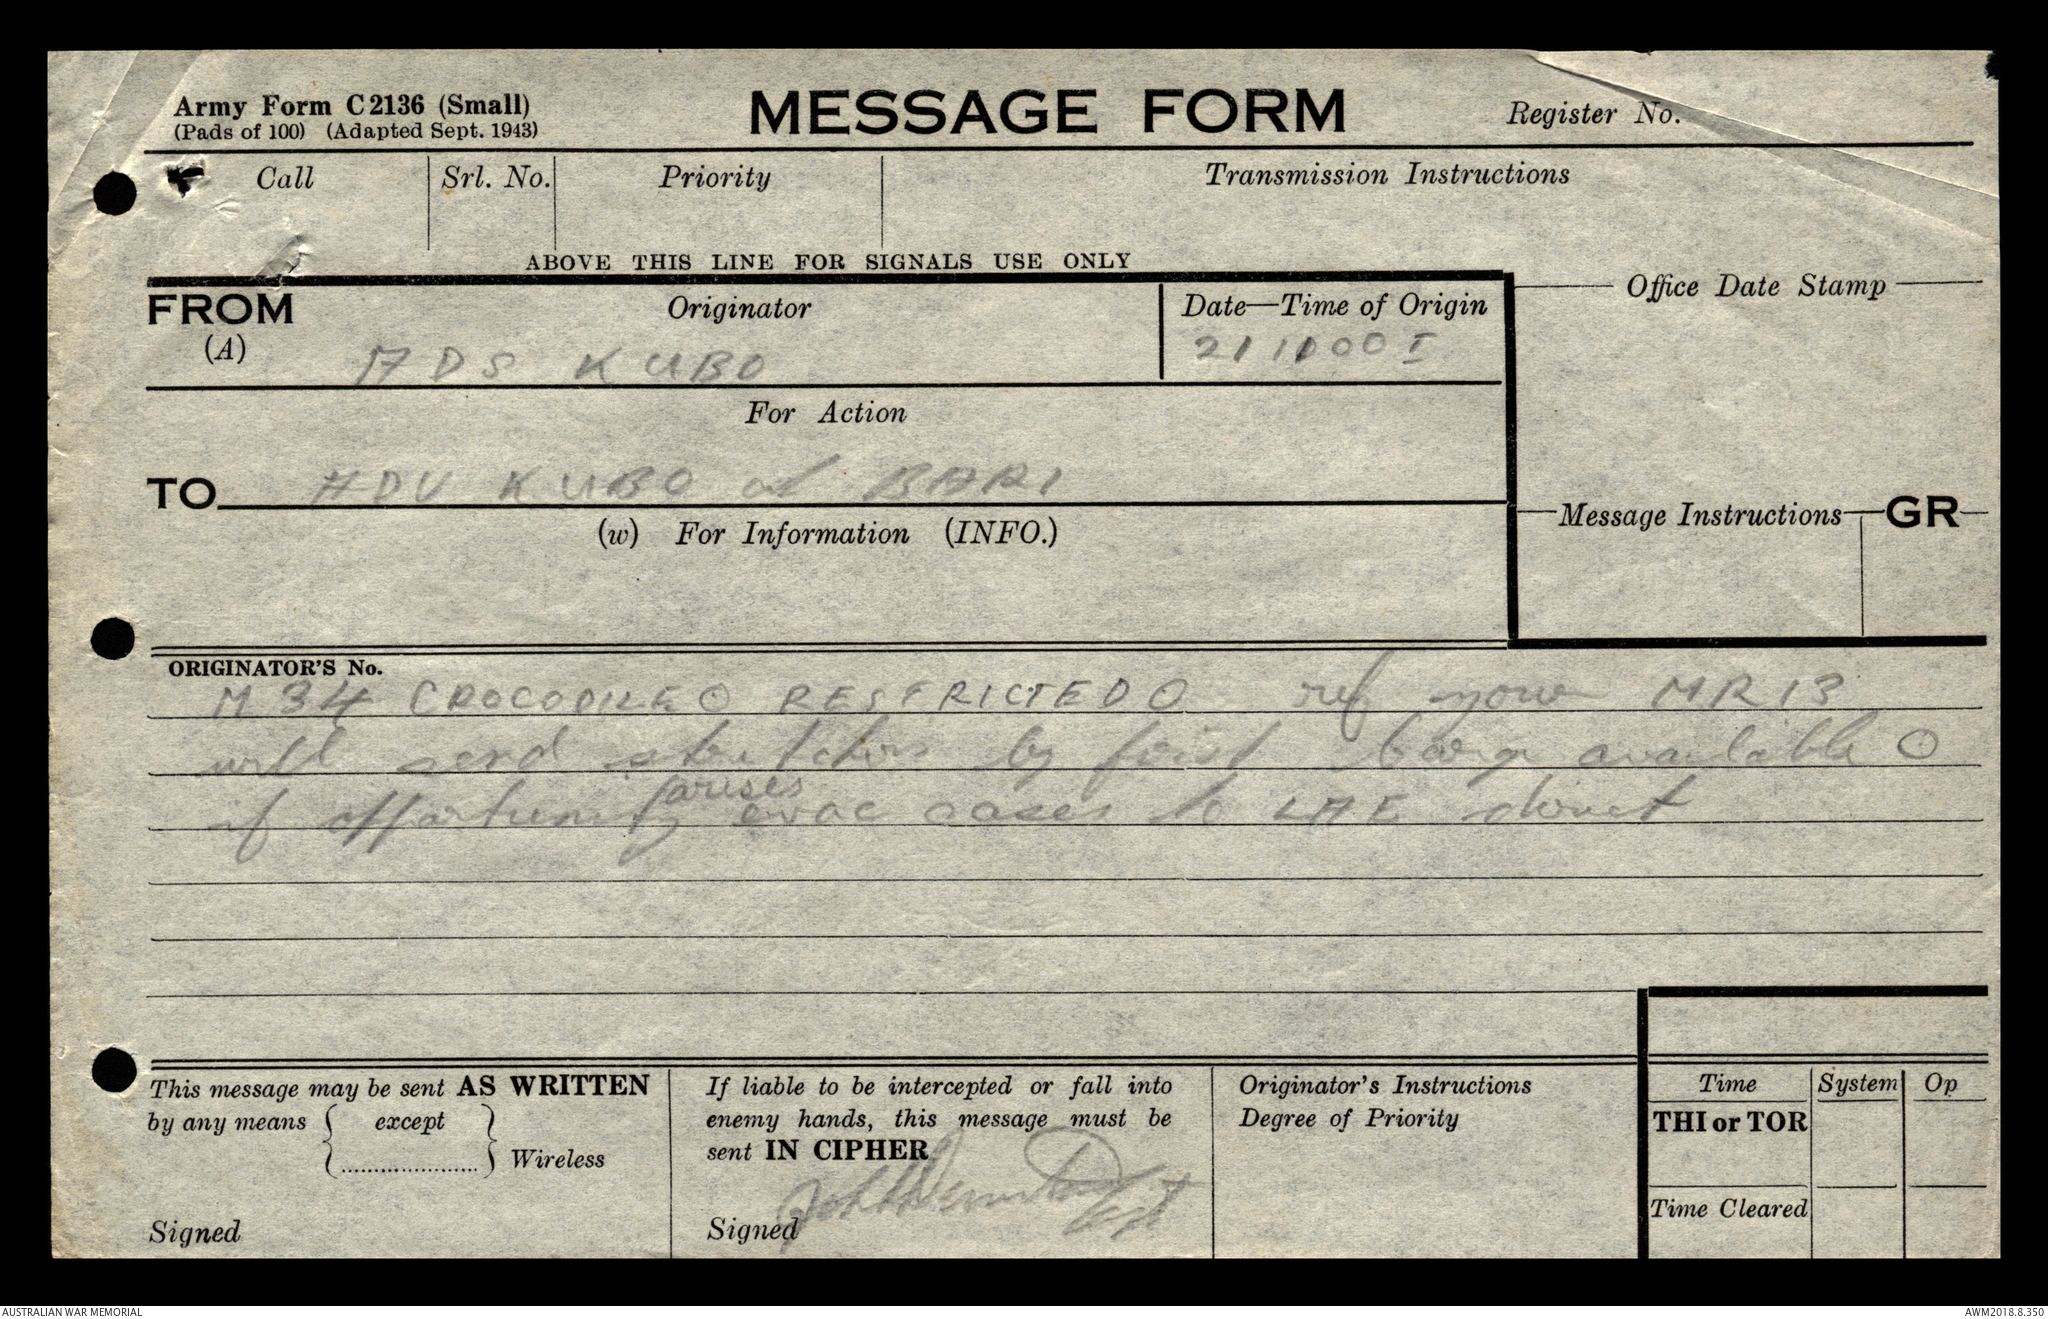 Army Form C2136 (Small) MESSAGE FORM Register No.
(Pads of 100) (Adapted Sept. 1943)
Call Srl. No. Priority Transmission Instructions
ABOVE THIS LINE FOR SIGNALS USE ONLY
FROM Originator Date—Time of Origin Office Date Stamp
(A) MDS KUBO 211000 I
For Action
TO HDU KUBO at BARI
(w) For Information (INFO.) Message Instructions GR
ORIGINATOR'S No.
M 34 CROCODILE ⊙ RESTRICTED O ref your MR 13
will send stretchers by first barge available ⊙
arises
if opportunity evac cases to LAE direct
This message may be sent AS WRITTEN If liable to be intercepted or fall into Originator's Instructions Time System Op
by any means { except } enemy hands, this message must be Degree of Priority THI or TOR
{ ..................... } Wireless sent IN CIPHER
Time Cleared
Signed Signed Capt
AUSTRALIAN WAR MEMORIAL AWM2018.8.350